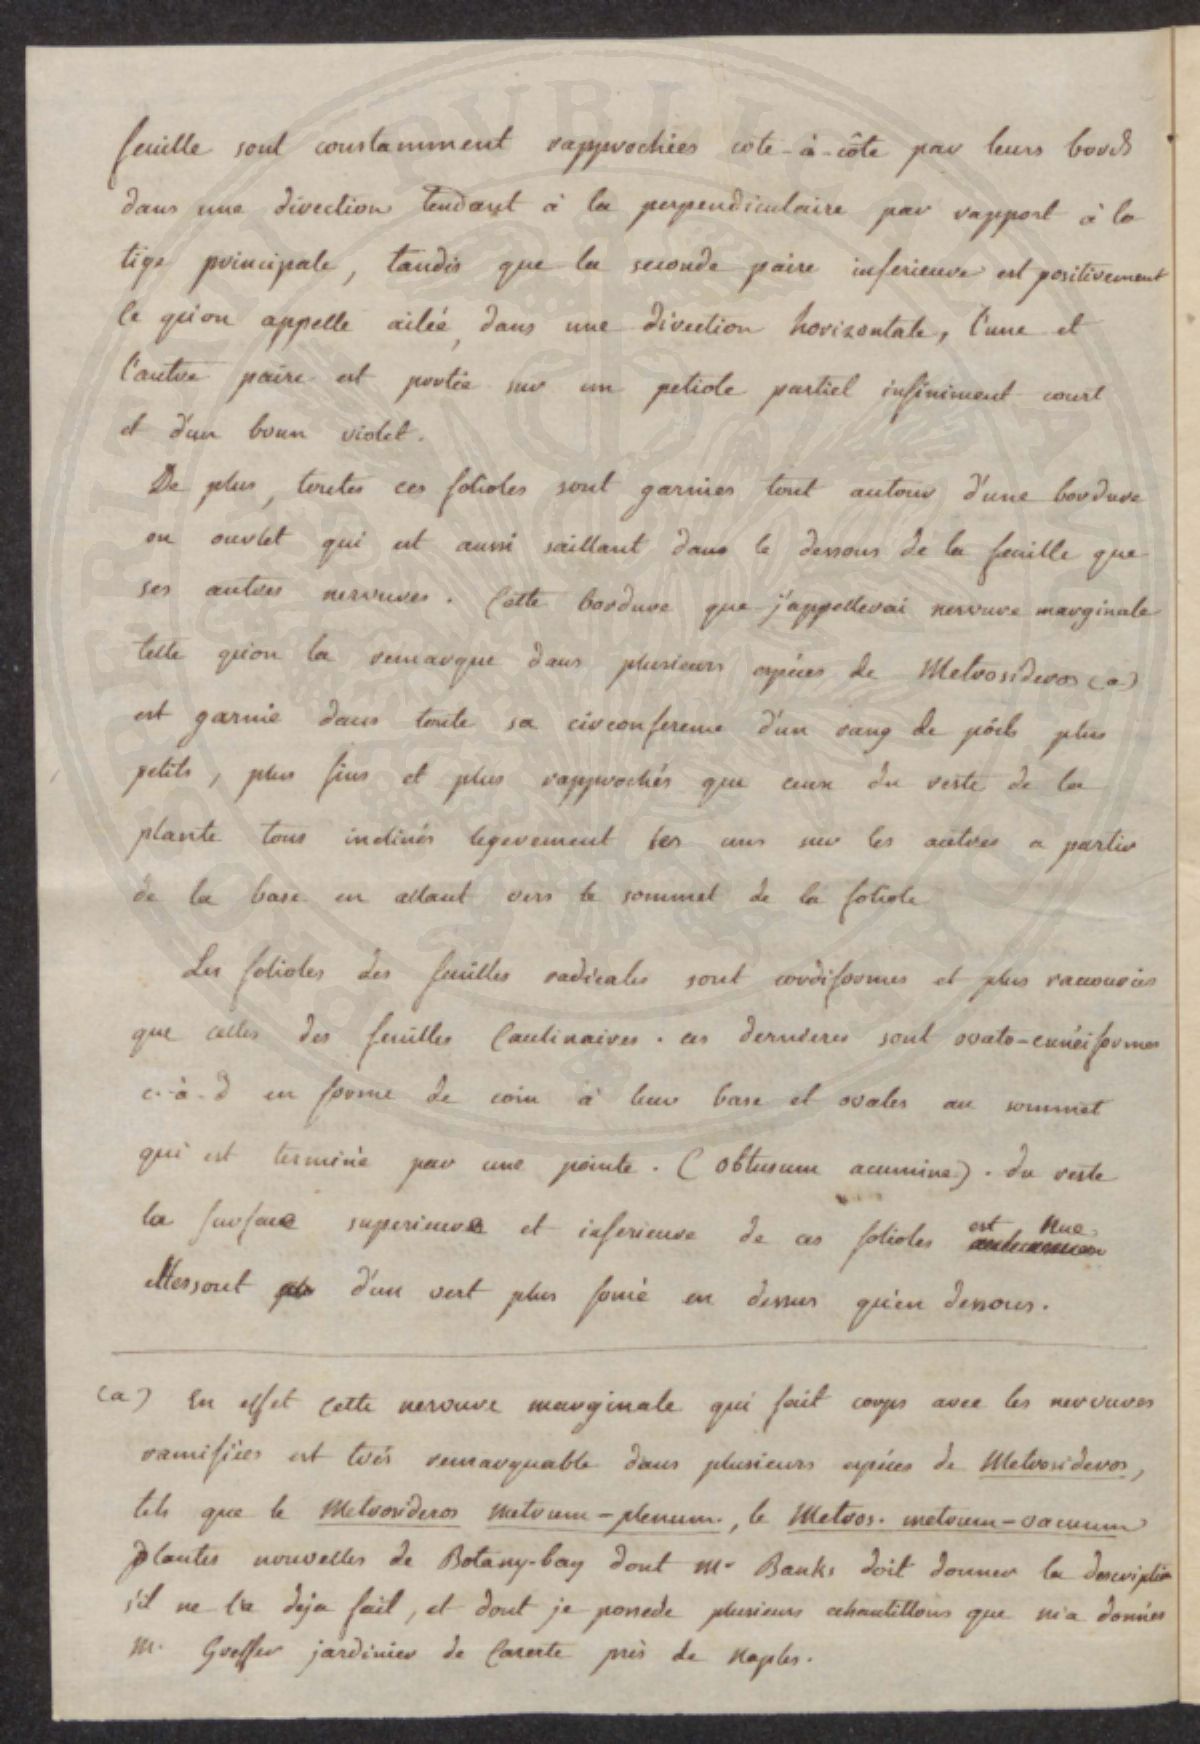 feuille sont constamment rapprochées côte-à-côte par leurs bords
dans une direction tendant à la perpendiculaire par rapport à la
tige principale, tandis que la seconde paire inferieure est positivement
ce qu'on appelle ailée, dans une direction horizontale, l'une et
l'autre paire est portée sur un petiole partiel infiniment court
et d'un brun violet.
De plus, toutes ces folioles sont garnies tout autour d'une bordure
ou ourlet qui est aussi saillant dans le dessous de la feuille que
ses autres nervures. Cette bordure que j'appellerai nervure marginale
telle qu'on la remarque dans plusieurs espéces de Metrosideros (a)
est garnie dans toute sa circonference d'un rang de poils plus
petits, plus fins et plus rapprochés que ceux du reste de la
plante tous inclinés legerement les uns sur les autres a partir
de la base en allant vers le sommet de la foliole
Les folioles des feuilles radicales sont cordiformes et plus racourcies
que celles des feuilles Caulinaires. ces dernieres sont ovato-cunéiformes
c.-à-d en forme de coin à leur base et ovales au sommet
qui est terminé par une pointe. (obtusum acumine). du reste
la surface superieure et inferieure de ces folioles est Nue
elles sont d'un vert plus foncé en dessus qu'en dessous.
(a) En effet Cette nervure marginale qui fait corps avec les nervures
ramifiées est trés remarquable dans plusieurs espéces de Metrosideros,
tels que le Metrosideros metrum-plenum, le Metros. metrum-vacuum
plantes nouvelles de Botany-bay dont Mr Banks doit donner la description
s'il ne l'a deja fait, et dont je possede plusieurs echantillons que m'a donnés
M. Greffer jardinier de Caserte près de Naples.
PUBLIC